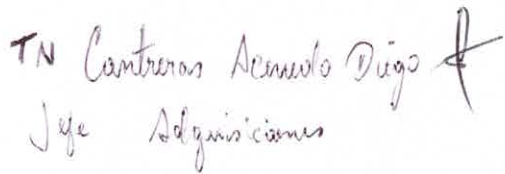 TN Contreras Acevedo Diego
Jefe Adquisiciones